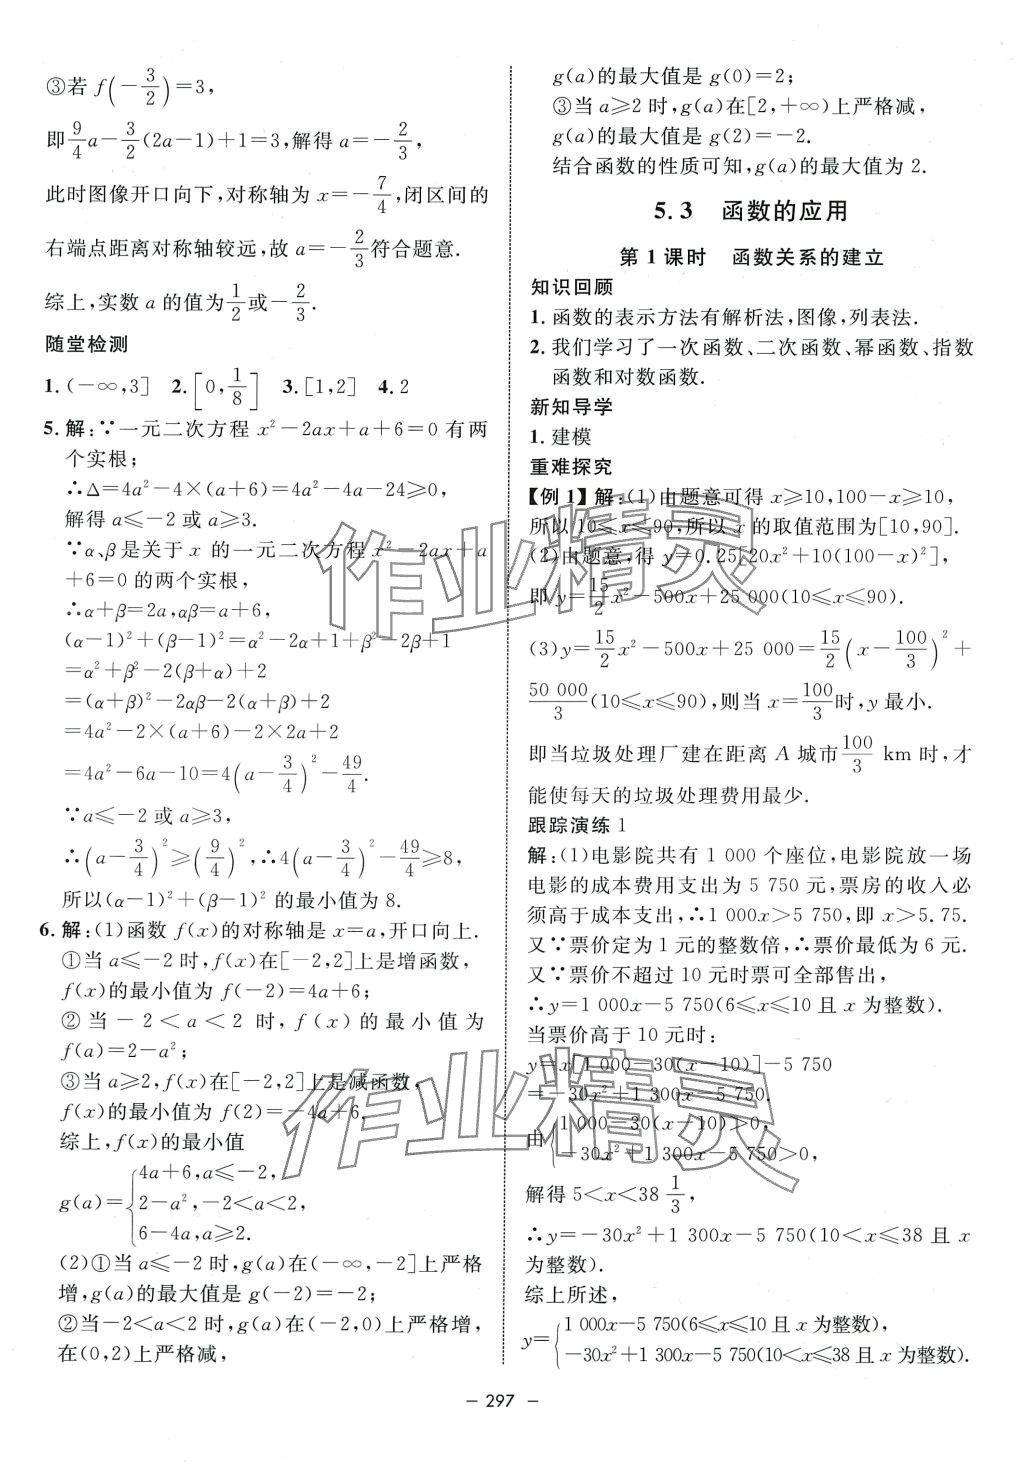 ③若 f(-3/2)=3,
即9/4a-3/2(2a-1)+1=3,解得 a=-2/3,
此时图像开口向下,对称轴为 x=-7/4,闭区间的
右端点距离对称轴较远,故 a=-2/3符合题意.
综上,实数 a 的值为1/2或-2/3.
随堂检测
1.(-∞,3] 2.[0,1/8] 3.[1,2] 4.2
5.解:∵一元二次方程 x²-2ax+a+6=0 有两
个实根;
∴Δ=4a²-4×(a+6)=4a²-4a-24≥0,
解得 a≤-2 或 a≥3.
∵α、β是关于 x 的一元二次方程 x²-2ax+a
+6=0 的两个实根,
∴α+β=2a,αβ=a+6,
(α-1)²+(β-1)²=α²-2α+1+β²-2β+1
=α²+β²-2(β+α)+2
=(α+β)²-2αβ-2(α+β)+2
=4a²-2×(a+6)-2×2a+2
=4a²-6a-10=4(a-3/4)²-49/4.
∵a≤-2 或 a≥3,
∴(a-3/4)²≥(9/4)²,∴4(a-3/4)²-49/4≥8,
所以(α-1)²+(β-1)²的最小值为 8.
6.解:(1)函数 f(x)的对称轴是 x=a,开口向上.
①当 a≤-2 时,f(x)在[-2,2]上是增函数,
f(x)的最小值为 f(-2)=4a+6;
②当-2<a<2 时,f(x)的最小值为
f(a)=2-a²;
③当 a≥2,f(x)在[-2,2]上是减函数,
f(x)的最小值为 f(2)=-4a+6.
综上,f(x)的最小值
g(a)={4a+6,a≤-2,
2-a²,-2<a<2,
6-4a,a≥2.
(2)①当 a≤-2 时,g(a)在(-∞,-2]上严格
增,g(a)的最大值是 g(-2)=-2;
②当-2<a<2 时,g(a)在(-2,0)上严格增,
在(0,2)上严格减,
g(a)的最大值是 g(0)=2;
③当 a≥2 时,g(a)在[2,+∞)上严格减,
g(a)的最大值是 g(2)=-2.
结合函数的性质可知,g(a)的最大值为 2.
5.3 函数的应用
第 1 课时 函数关系的建立
知识回顾
1.函数的表示方法有解析法,图像,列表法.
2.我们学习了一次函数、二次函数、幂函数、指数
函数和对数函数.
新知导学
1.建模
重难探究
【例 1】解:(1)由题意可得 x≥10,100-x≥10,
所以 10≤x≤90,所以 x 的取值范围为[10,90].
(2)由题意,得 y=0.25[20x²+10(100-x)²],
即 y=15/2x²-500x+25 000(10≤x≤90).
(3)y=15/2x²-500x+25 000=15/2(x-100/3)²+
50 000/3(10≤x≤90),则当 x=100/3时,y 最小.
即当垃圾处理厂建在距离 A 城市100/3 km 时,才
能使每天的垃圾处理费用最少.
跟踪演练 1
解:(1)电影院共有 1 000 个座位,电影院放一场
电影的成本费用支出为 5 750 元,票房的收入必
须高于成本支出,∴1 000x>5 750,即 x>5.75.
又∵票价定为 1 元的整数倍,∴票价最低为 6 元.
又∵票价不超过 10 元时票可全部售出,
∴y=1 000x-5 750(6≤x≤10 且 x 为整数).
当票价高于 10 元时:
y=x[1 000-30(x-10)]-5 750
=-30x²+1 300x-5 750.
由{1 000-30(x-10)>0,
-30x²+1 300x-5 750>0,
解得 5<x<38 1/3,
∴y=-30x²+1 300x-5 750(10<x≤38 且 x
为整数).
综上所述,
y={1 000x-5 750(6≤x≤10 且 x 为整数),
-30x²+1 300x-5 750(10<x≤38 且 x 为整数).
- 297 -
作业精灵
作业精灵